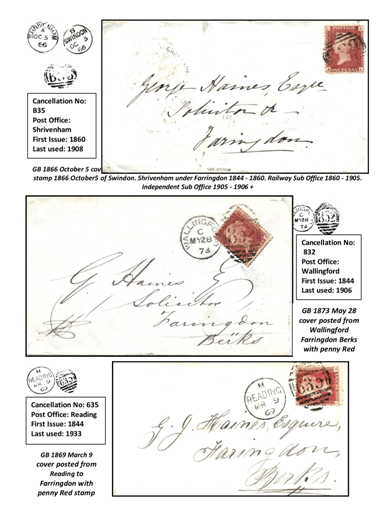 SHRIVENHAM
A
OC 5
66
FARINGDON
OC 5
66
B35
Cancellation No:
B35
Post Office:
Shrivenham
First Issue: 1860
Last used: 1908
George Haines Esqre
Solicitor
Faringdon
GB 1866 October 5 cov
stamp 1866 October5 of Swindon. Shrivenham under Farringdon 1844 - 1860. Railway Sub Office 1860 - 1905.
Independent Sub Office 1905 - 1906 +
WALLINGFORD
C
MY 28
73
G Haines
Solicitor
Faringdon
Berks
832
73
Cancellation No:
832
Post Office:
Wallingford
First Issue: 1844
Last used: 1906
GB 1873 May 28
cover posted from
Wallingford
Farringdon Berks
with penny Red
M
READING
MR 9
69
635
Cancellation No: 635
Post Office: Reading
First Issue: 1844
Last used: 1933
GB 1869 March 9
cover posted from
Reading to
Farringdon with
penny Red stamp
M
READING
MR 9
69
635
G. J. Haines, Esquire,
Faringdon,
Berks.